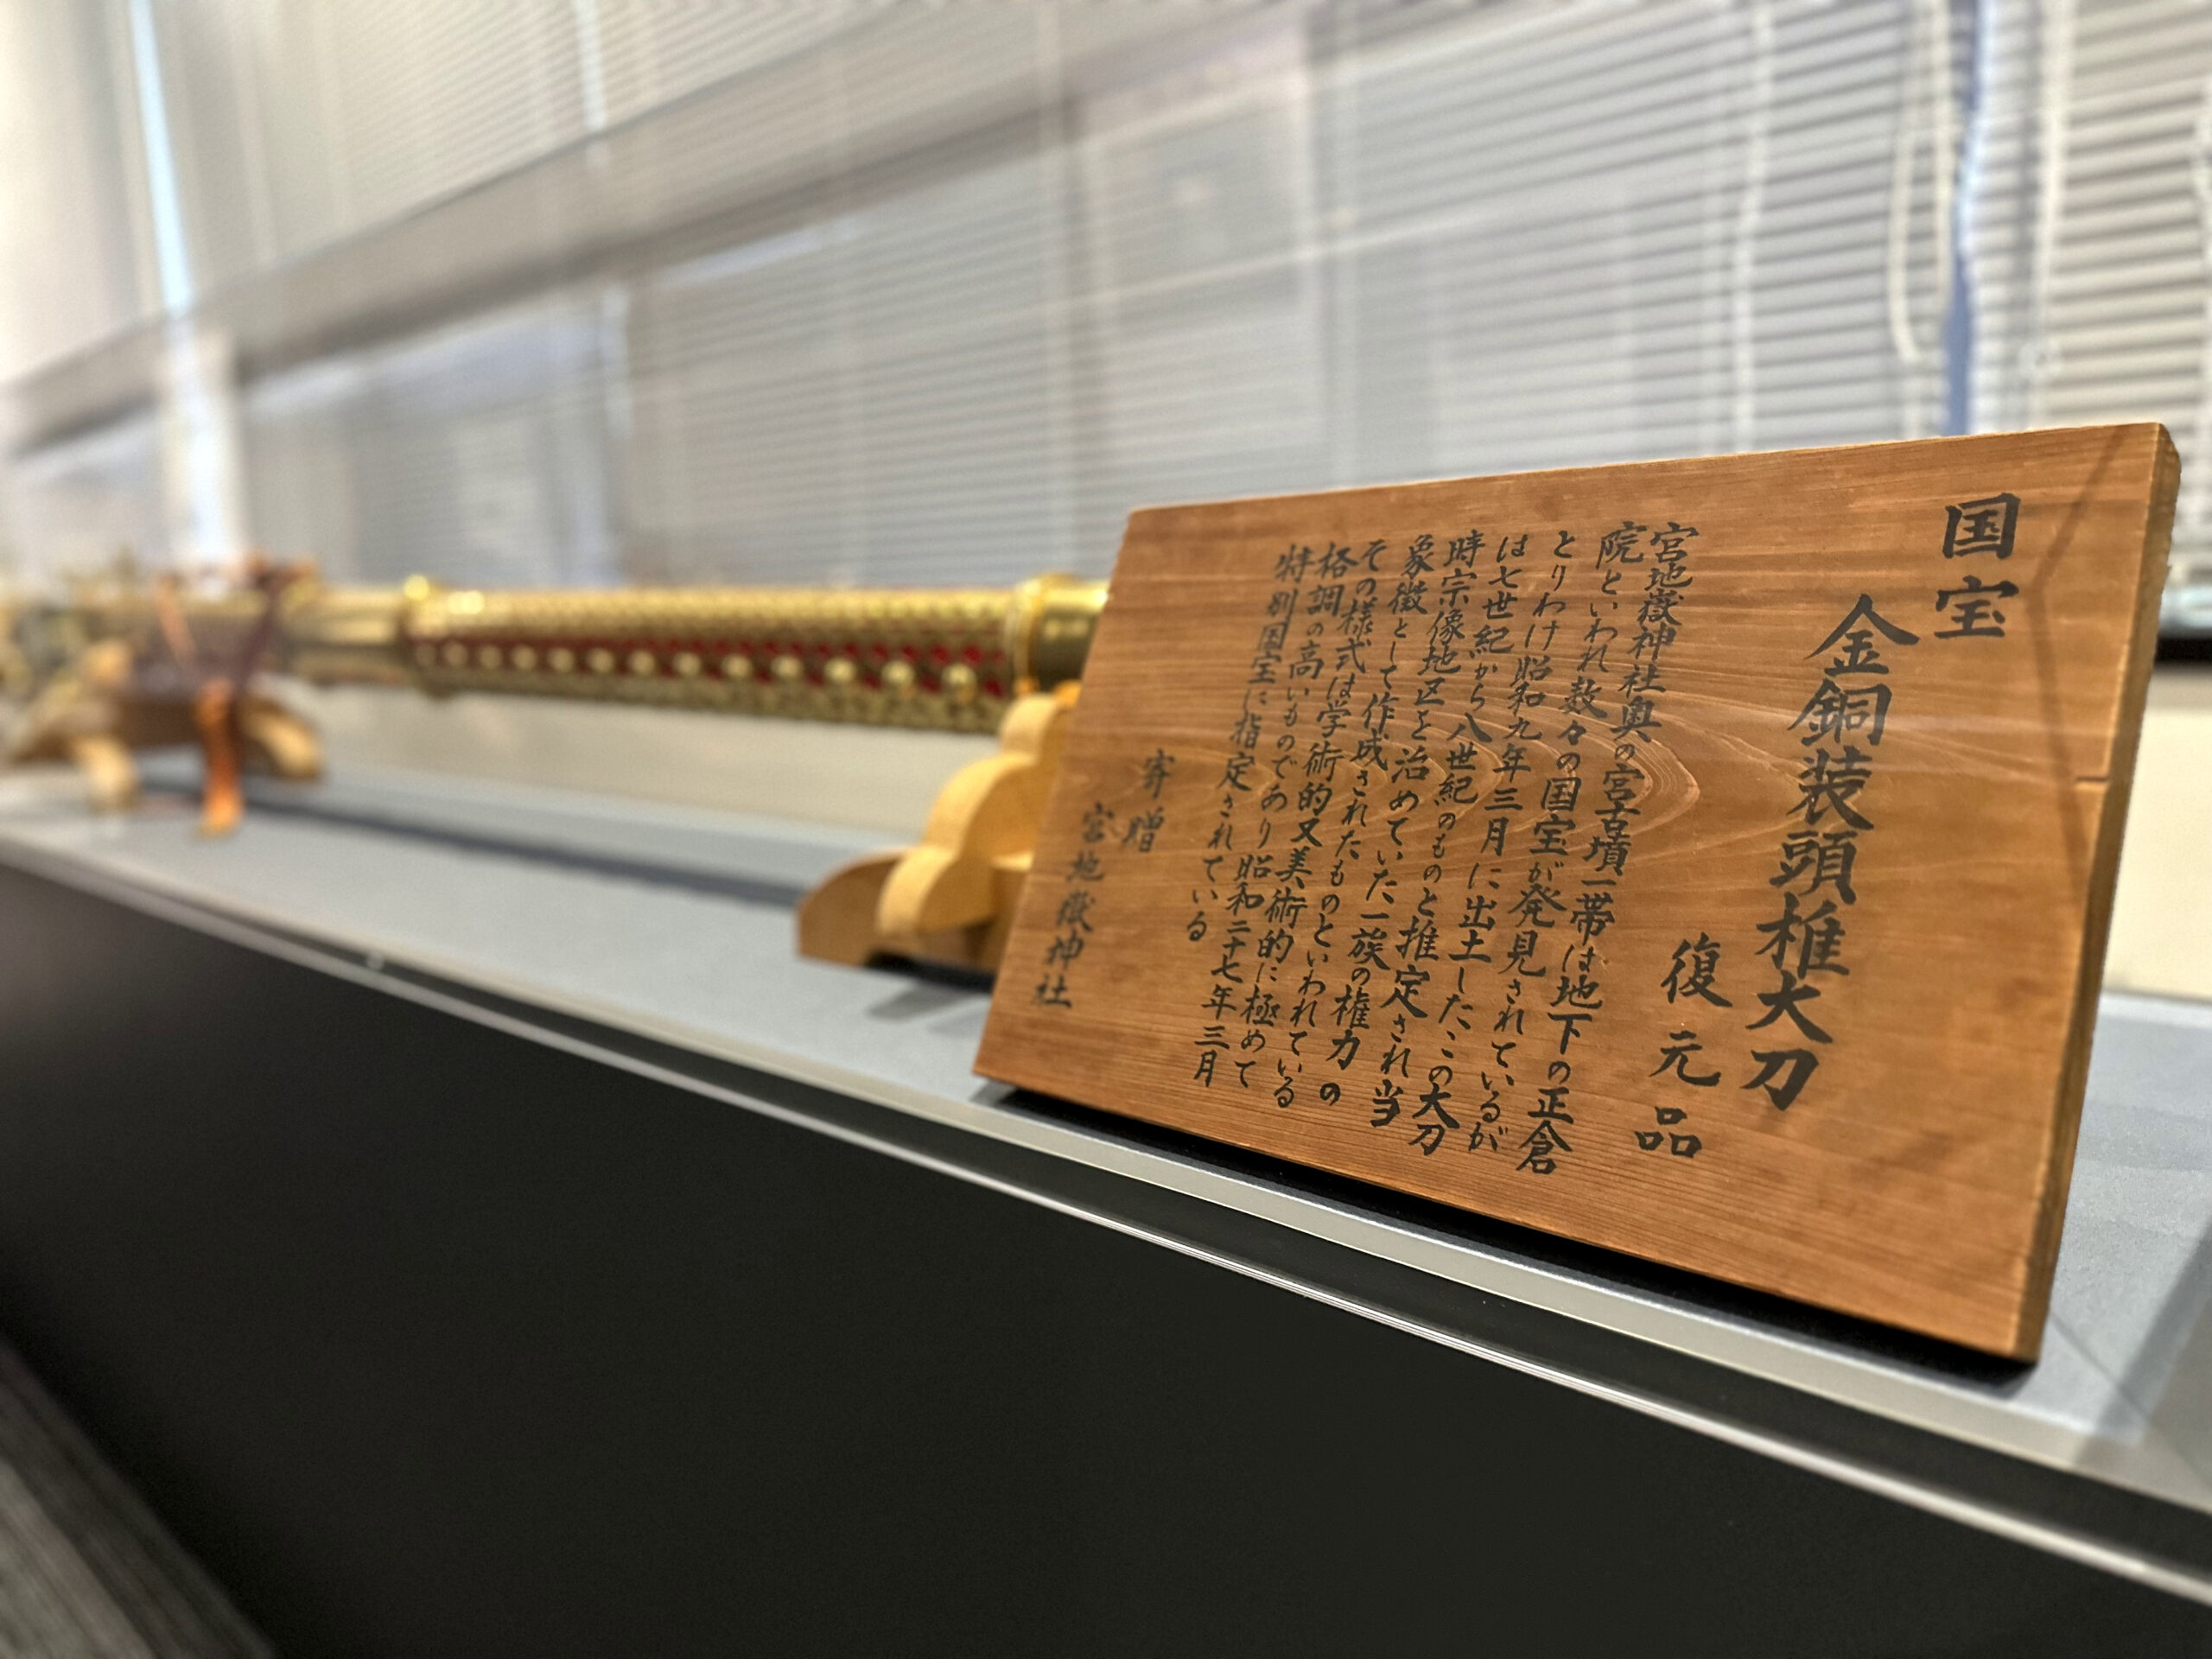 国宝
金銅装頭椎大刀
復元品
宮地嶽神社奥の宮古墳一帯は地下の正倉
院といわれ数々の国宝が発見されているが
とりわけ昭和九年三月に出土したこの大刀
は七世紀から八世紀のものと推定され当
時宗像地区を治めていた一族の権力の
象徴として作成されたものといわれている
その様式は学術的又美術的に極めて
格調の高いものであり昭和二十七年三月
特別国宝に指定されている
寄贈
宮地嶽神社